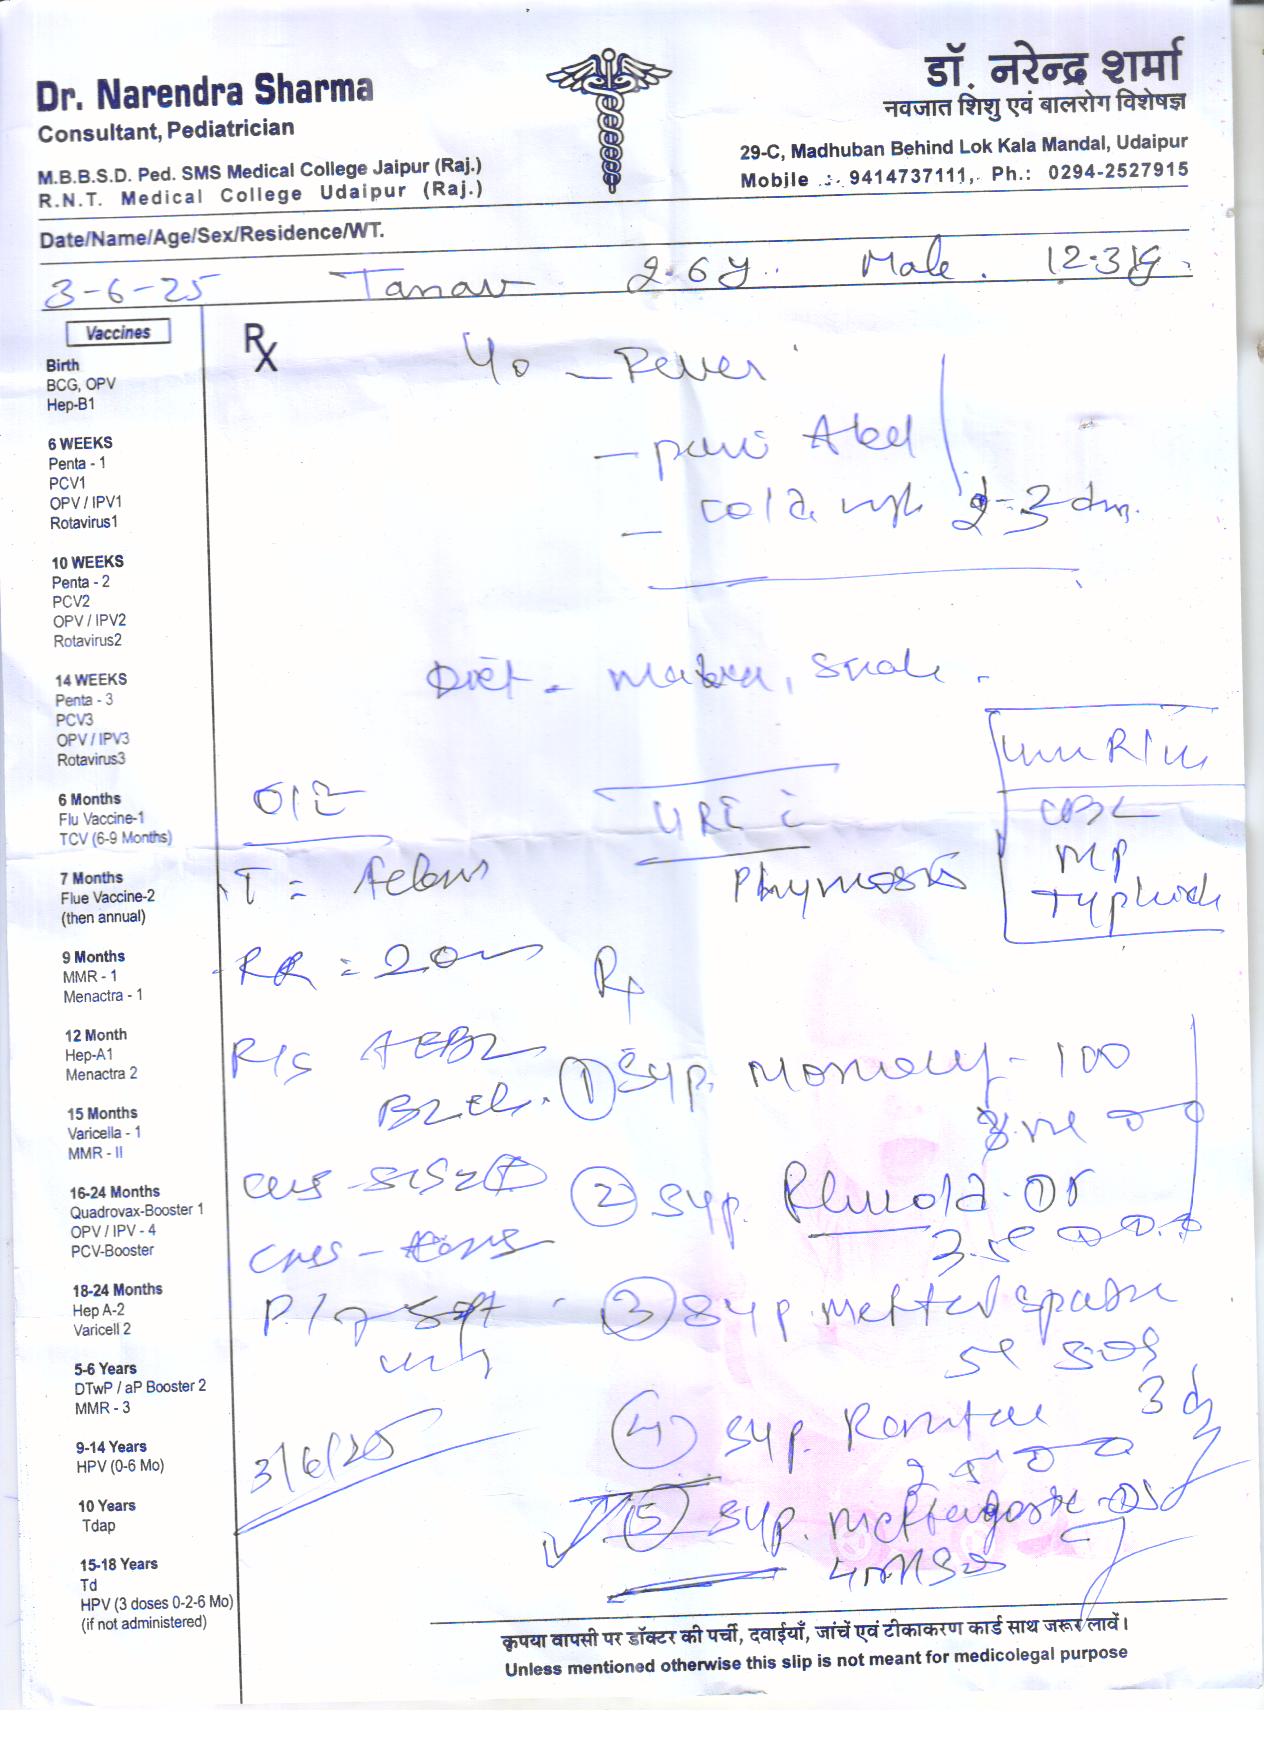 Dr. Narendra Sharma
Consultant, Pediatrician
M.B.B.S.D. Ped. SMS Medical College Jaipur (Raj.)
R.N.T. Medical College Udaipur (Raj.)
डॉ. नरेन्द्र शर्मा
नवजात शिशु एवं बालरोग विशेषज्ञ
29-C, Madhuban Behind Lok Kala Mandal, Udaipur
Mobile :- 9414737111, Ph.: 0294-2527915
Date/Name/Age/Sex/Residence/WT.
3-6-25 Tanav 2.6y. Male. 12.3
Vaccines
Birth
BCG, OPV
Hep-B1
6 WEEKS
Penta - 1
PCV1
OPV / IPV1
Rotavirus1
10 WEEKS
Penta - 2
PCV2
OPV / IPV2
Rotavirus2
14 WEEKS
Penta - 3
PCV3
OPV / IPV3
Rotavirus3
6 Months
Flu Vaccine-1
TCV (6-9 Months)
7 Months
Flue Vaccine-2
(then annual)
9 Months
MMR - 1
Menactra - 1
12 Month
Hep-A1
Menactra 2
15 Months
Varicella - 1
MMR - II
16-24 Months
Quadrovax-Booster 1
OPV / IPV - 4
PCV-Booster
18-24 Months
Hep A-2
Varicell 2
5-6 Years
DTwP / aP Booster 2
MMR - 3
9-14 Years
HPV (0-6 Mo)
10 Years
Tdap
15-18 Years
Td
HPV (3 doses 0-2-6 Mo)
(if not administered)
Rx
- Fever
- pain Abd
- cold 2-3
Diet -
O/E
T =
RR = 20
R/S AEBE
P/A soft
3/6/25
URI
Phymosis
CBC
MP
Typhoid
Rx
① Syp. - 100
② Syp.
③ Syp. meftal spasm
sos
④ Syp. 3
⑤ Syp.
कृपया वापसी पर डॉक्टर की पर्ची, दवाईयाँ, जांचें एवं टीकाकरण कार्ड साथ जरूर लावें।
Unless mentioned otherwise this slip is not meant for medicolegal purpose